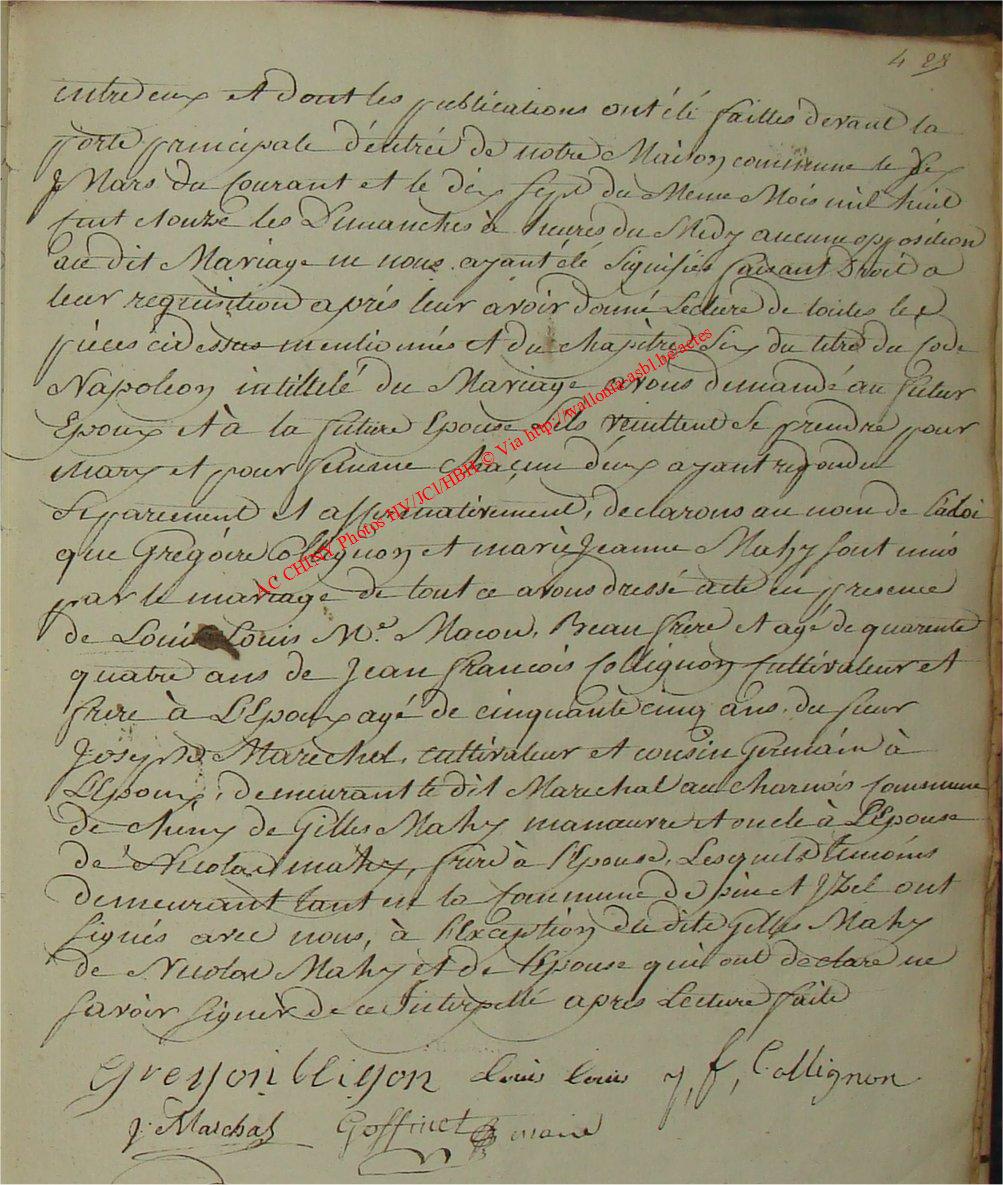 4 28
entre eux et dont les publications ont été failles devant la
porte principale d'entrée de notre Maison commune le dix
Mars du Courant et le dix sept du Meme Mois mil huit
cent onze les Dimanches à heures du Midy aucune opposition
au dit Mariage ne nous ayant été signifiés faisant Droit a
leur requisition après leur avoir donné Lecture de toutes les
pièces cidessus mentionnés et du chapitre Six du titre du Code
Napoleon intittelé du Mariage avons demandé au futur
Epoux et à la future Epouse s'ils veuillent se prendre pour
mary et pour femme chacun d'eux ayant repondu
Separement et affirmativement, declarons au nom de la loi
que Gregoire Collignon et marie Jeanne Mahy sont unis
par le mariage de tout ce avons dressé acte en presence
de Louis Louis Me. Macon, Beau frere et agé de quarente
quatre ans de Jean francois Collignon Cultivateur et
frere à L'Epoux agé de cinquante cinq ans, du sieur
Joseph Marechel, cultivateur et cousin Germain à
L'Epoux, demeurant le dit Marechal au charnois Commune
de cheny de Gilles Mahy manœuvre et oncle à L'Epouse
de Nicolas mahy, frère à l'Epouse, Lesquels temoins
demeurant tant en la Commune de pin et Jzel ont
signés avec nous, à l'Exception du dite Gilles Mahy
de Nicolas Mahy et de l'Epouse qui ont declaré ne
savoir signer de ce Interpellé apres Lecture faite
louis louis J, f, Collignon
J. Marchal Goffinet maire
AC CHINY Photos HV/JCI/HBH © Via http://wallonia-asbl.be.actes